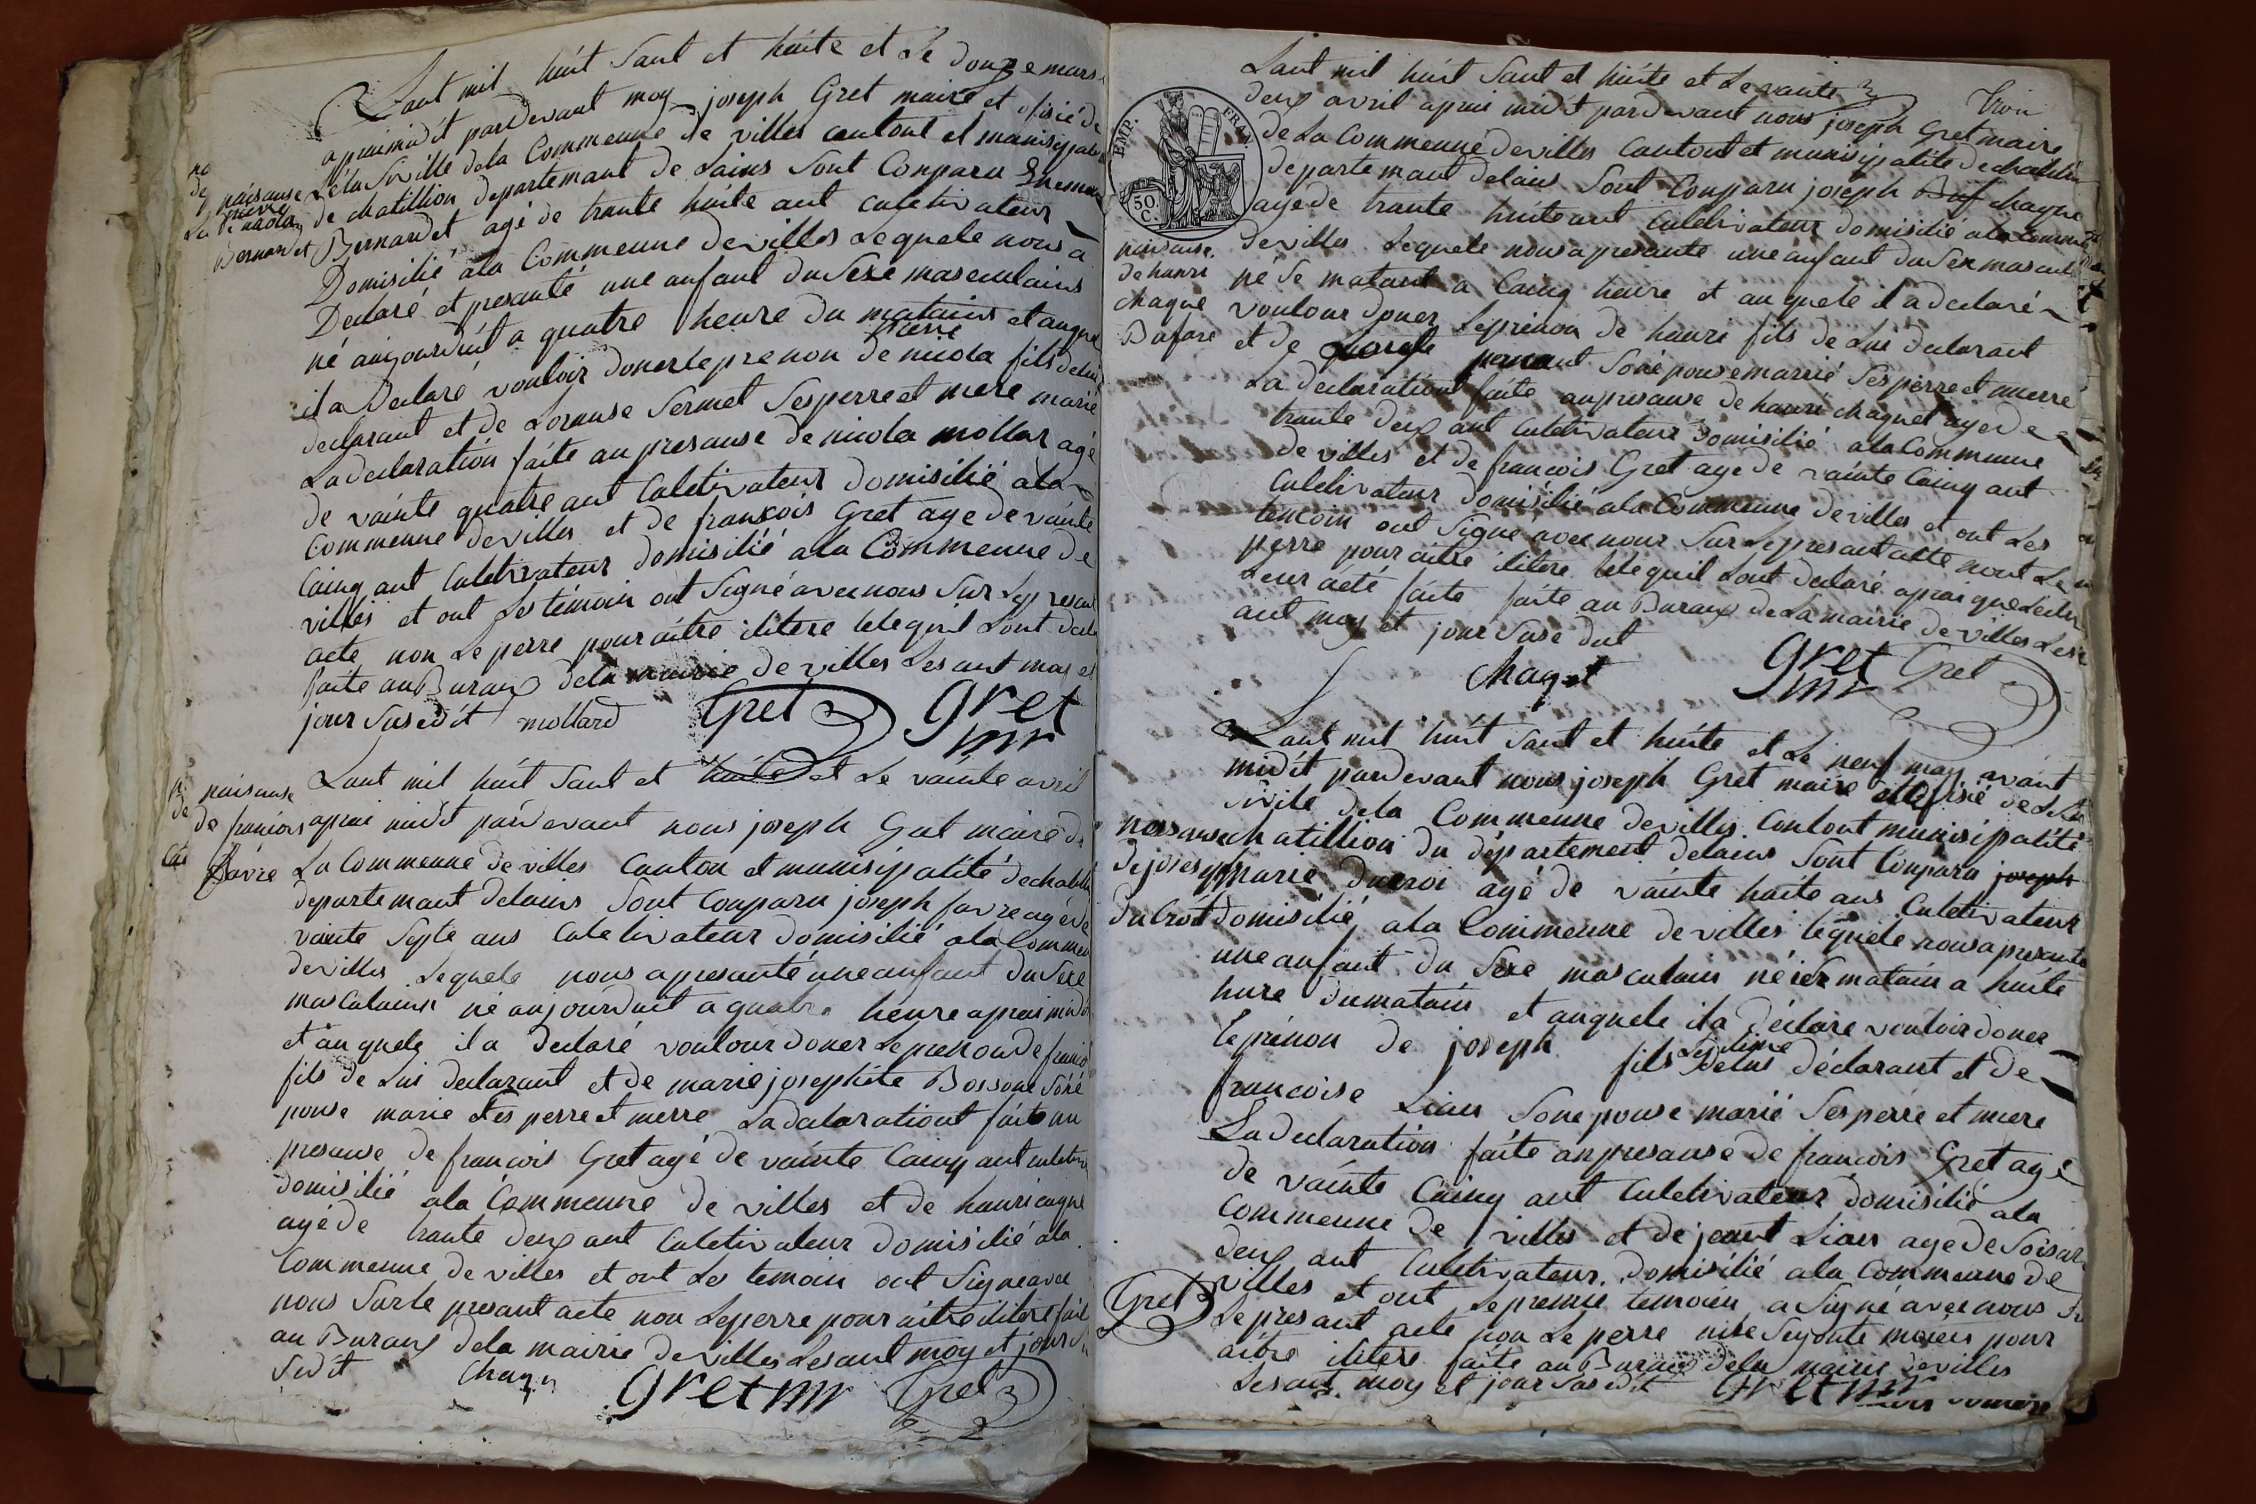 Lant mil huit Sant et huite et Le douze mars
apraimidit pardevant moy joseph Gret maire et ofisié de
Léta Siville dela Commeune de villes cantont et munisipalité
de chatillion departemant de Lains Sont Conparu
Bernardet agé de trante huite ant culetivateur
Domisilié ala Commeune de villes Lequele nous a
Declaré et presanté une anfant du Sexe masculains
né aujourduit a quatre heure du matains et auquele
pierre
il a Declaré vouloir doner le prenon de nicola fils de lui
declarant et de Lorause Sermet Ses perre et mere marié
La declaration faite au presause de nicola mollar agé
de vainte quatre ant Culetivateur domisilié ala
Commeune de villes et de fransois Gret age de vainte
Cainq ant Culetivateur domisilié ala Commeune de
villes et ont Les témoin ont Signé avec nous Sur Le presant
acte non Le perre pour aitre ilitere
faite au Buraux dela mairie de villes Les ant moy et
jour Susedit mollard Gret gret
mr
naisause
pierre
de nicola
Bernardet
Lant mil huit Sant et huite et Le vainte avril
aprai midit pardevant nous joseph Gret maire de
La Commeune de villes Canton et munisipalité de chatillion
departemant delains Sont Conparu joseph favre agé de
vainte Septe ans Culetivateur domisilié ala Commeune
de villes Lequele nous a presanté une anfant du Sexe
masculains né aujourduit a quatre heure apraimidit
et auquele il a Declaré voulour doner Le prenon de fransois
fils de Lui declarant et de marie josephte Bossone Soné
pouse marié Ses perre et merre La declarationt faite au
presause de fransois Gret agé de vainte Cainq ant culetiv
domisilié ala Commeune de villes et de hauri cagne
agé de trante deux ant Culetivateur domisilié ala
Commeune de villes et ont Les temoin ont Signe avec
nous Surle presant acte non Le perre pour aitre ilitere fait
au Buraux dela mairie de villes Les ant moy et jour Su
Sedit Gret mr Gret
naisause
de fransois
favre
Lant mil huit Sant et huite et Le vante
deux avril aprai midit pardevant nous joseph Gret maire
de La Commeune de villes Cantont et munisipalité de chatillion
departemant delains Sont Conparu joseph Buf chagne
age de trante huite ant Culetivateur domisilié ala Commeune
de villes Lequele nous a presante une anfant du Sex mascul
né Se matant a Cainq heure et auquele il a declaré
voulour doner Le prénon de hauri fils de Lui declarant
et de Soné pouse marrié Ses perre et merre
La declarationt faite au presause de hauri chagnet age de
trante deux ant Culetivateur domisilié ala Commeune
de villes et de francois Gret age de vainte Cainq ant
Culetivateur domisilié ala Commeune de villes et ont Les
temoin ont Signe avec nous Sur Le presant acte nont Le
perre pour aitre ilitere Lele quil Lont declaré aprai que Lectur
Leur aété faite faite au Buraux de La mairie de villes Les
ant moy et jour Suse dit
Chagnet gret Gret
mr
EMP. FRA.
50. C.
naisause
de hauri
chagne
Bufare
Lant mil huit Sant et huite et Le neuf may avant
midit pardevant nous joseph Gret maire et ofisié de Léta
Sivile dela Commeune de villes Contont munisipalité
chatillion du département delains Sont Conparu joseph
marie ducroi agé de vainte huite ans Culetivateur
domisilié ala Commeune de villes lequele nous a presante
une anfant du Sexe masculain né ier matain a huite
hure dumatain et auquele il a declare vouloir doner
le prénon de joseph fils Legitime delui déclarant et de
francoise Liain Sone pouse marié Ses perre et mere
La declaration faite au presause de francois Gret agé
de vainte Cainq ant Culetivateur domisilié ala
Commeune de villes et de jeant Liain age de Soisante
deux ant Culetivateur domisilié ala Commeune de
villes et ont Le premie temoin a Signé avec nous Su
Le presant acte non Le perre pour
aitre ilitere faite au Buraux dela mairie de villes
Les ant moy et jour Susedit Gret mr
naisause
de joseph
ducrót
Gret